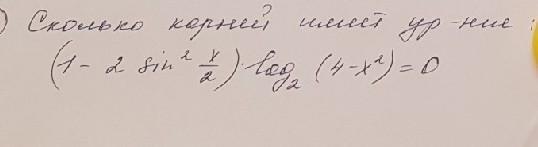 ) Сколько корней имеет ур-ние :
(1 - 2 sin² x/2) · log₂ (4-x²) = 0